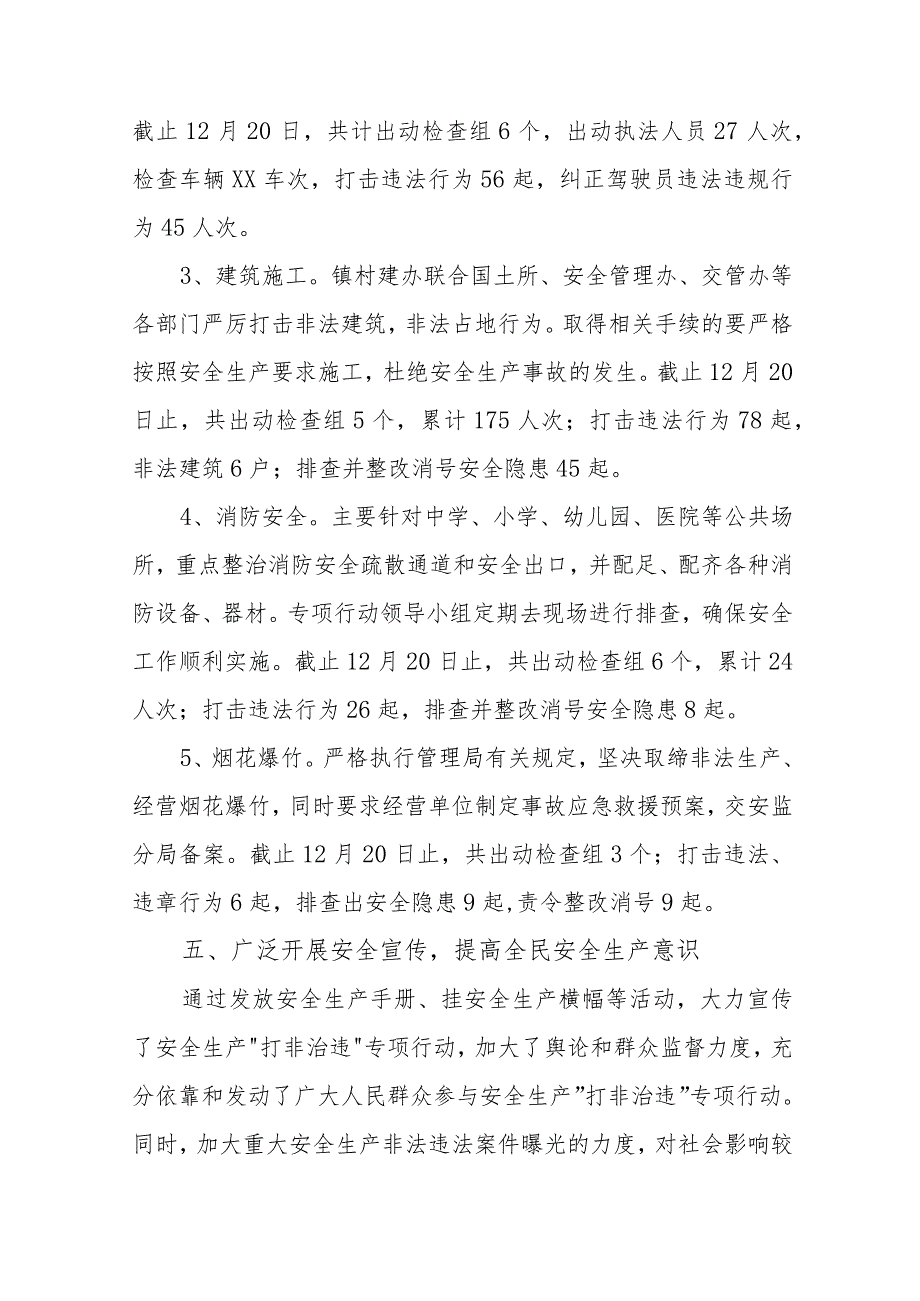 截止12月20日，共计出动检查组6个，出动执法人员27人次，
检查车辆XX车次，打击违法行为56起，纠正驾驶员违法违规行
为45人次。
3、建筑施工。镇村建办联合国土所、安全管理办、交管办等
各部门严厉打击非法建筑，非法占地行为。取得相关手续的要严格
按照安全生产要求施工，杜绝安全生产事故的发生。截止12月20
日止，共出动检查组5个，累计175人次；打击违法行为78起，
非法建筑6户；排查并整改消号安全隐患45起。
4、消防安全。主要针对中学、小学、幼儿园、医院等公共场
所，重点整治消防安全疏散通道和安全出口，并配足、配齐各种消
防设备、器材。专项行动领导小组定期去现场进行排查，确保安全
工作顺利实施。截止12月20日止，共出动检查组6个，累计24
人次；打击违法行为26起，排查并整改消号安全隐患8起。
5、烟花爆竹。严格执行管理局有关规定，坚决取缔非法生产、
经营烟花爆竹，同时要求经营单位制定事故应急救援预案，交安监
分局备案。截止12月20日止，共出动检查组3个；打击违法、
违章行为6起，排查出安全隐患9起,责令整改消号9起。
五、广泛开展安全宣传，提高全民安全生产意识
通过发放安全生产手册、挂安全生产横幅等活动，大力宣传
了安全生产"打非治违"专项行动，加大了舆论和群众监督力度，充
分依靠和发动了广大人民群众参与安全生产”打非治违”专项行动。
同时，加大重大安全生产非法违法案件曝光的力度，对社会影响较